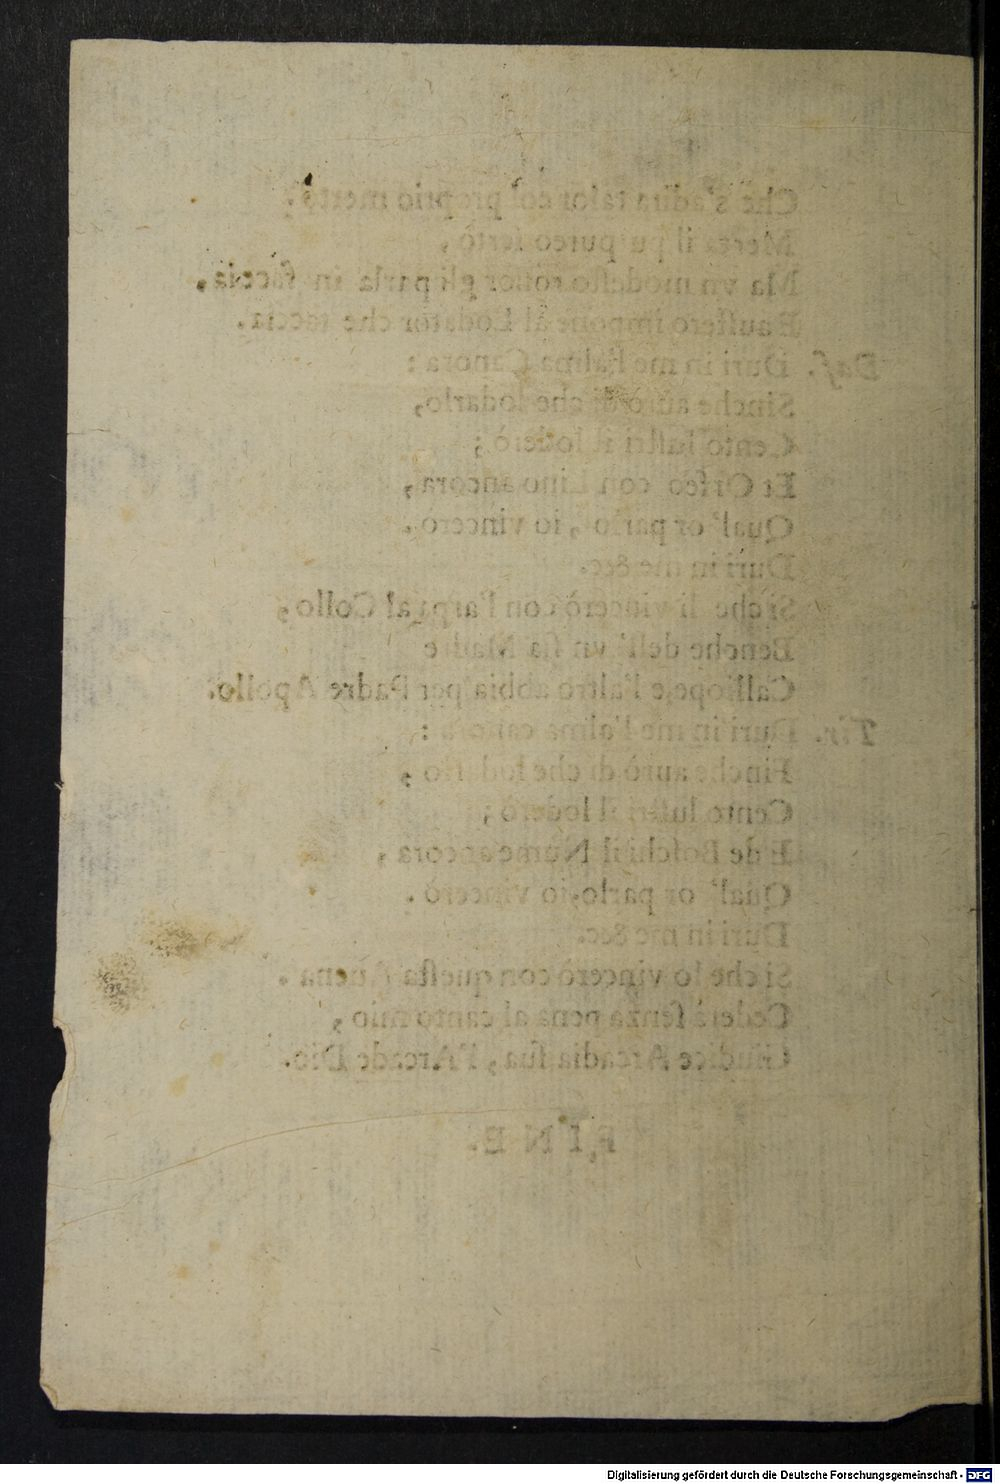 Che s'adira talor col proprio merto,
Merta il purpureo serto,
Ma vn modesto rossor gli parla in faccia,
E austero impone al Lodator che taccia.
Daf. Duri in me l'alma Canora:
Sinche aurò di che lodarlo,
Cento lustri il loderò;
Et Orfeo con Lino ancora,
Qual'or parlo, io vincerò.
Duri in me &c.
Si che li vincerò con l'arpa al Collo,
Benche dell'vn sia Madre
Calliope, e l'altro abbia per Padre Apollo.
Tir. Duri in me l'alma canora:
Finche aurò di che lodarlo,
Cento lustri il loderò;
E de Boschi il Nume ancora,
Qual'or parlo, io vincerò.
Duri in me &c.
Si che lo vincerò con questa Auena.
Cederà senza pena al canto mio,
Giudice Arcadia sua, l'Arcade Dio.
FINE.
Digitalisierung gefördert durch die Deutsche Forschungsgemeinschaft - DFG